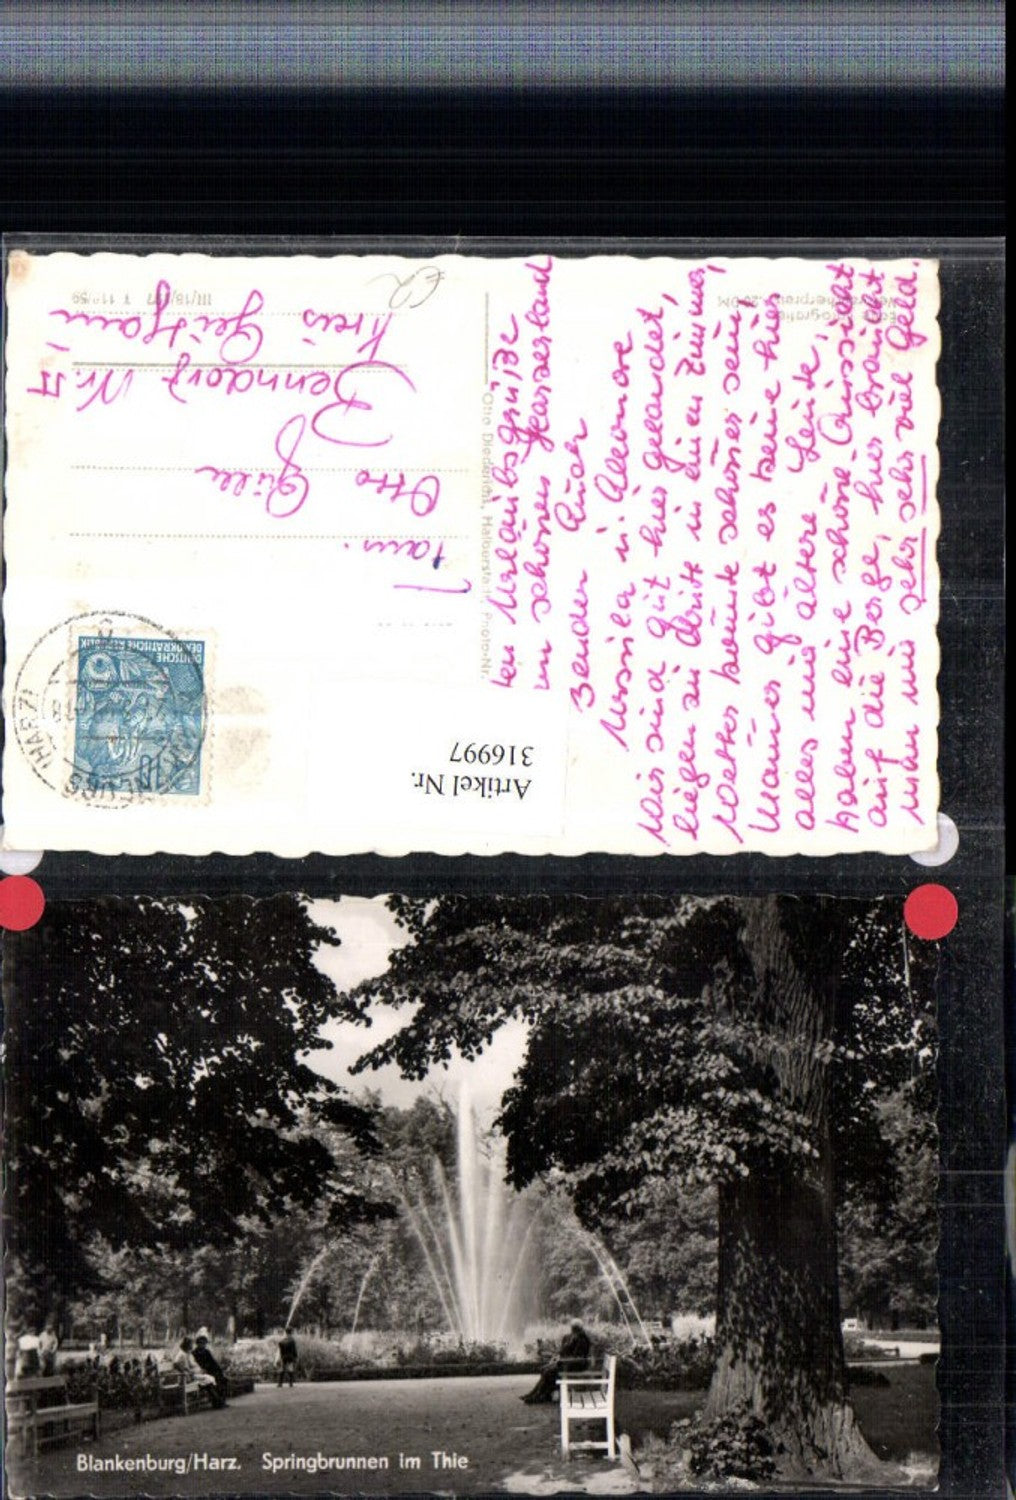 Echte Fotografie
III/18/197 T 119/59
Otto Diederichs, Halberstadt, Photo-Nr.
DEUTSCHE
DEMOKRATISCHE REPUBLIK
10
(HARZ)
Artikel Nr.
316997
€2
Fam.
Otto
Kreis Geithain
ein Urlaubsgrüße
im schönen Harzerland
senden Euch
Ursula u. Eleonore
Wir sind gut hier gelandet,
liegen zu dritt in einen Zimmer,
Wetter könnte schöner sein,
Männer gibt es keine hier
alles nur ältere Leute,
haben eine schöne Aussicht
auf die Berge, hier braucht
man nur sehr sehr viel Geld.
Blankenburg/Harz. Springbrunnen im Thie